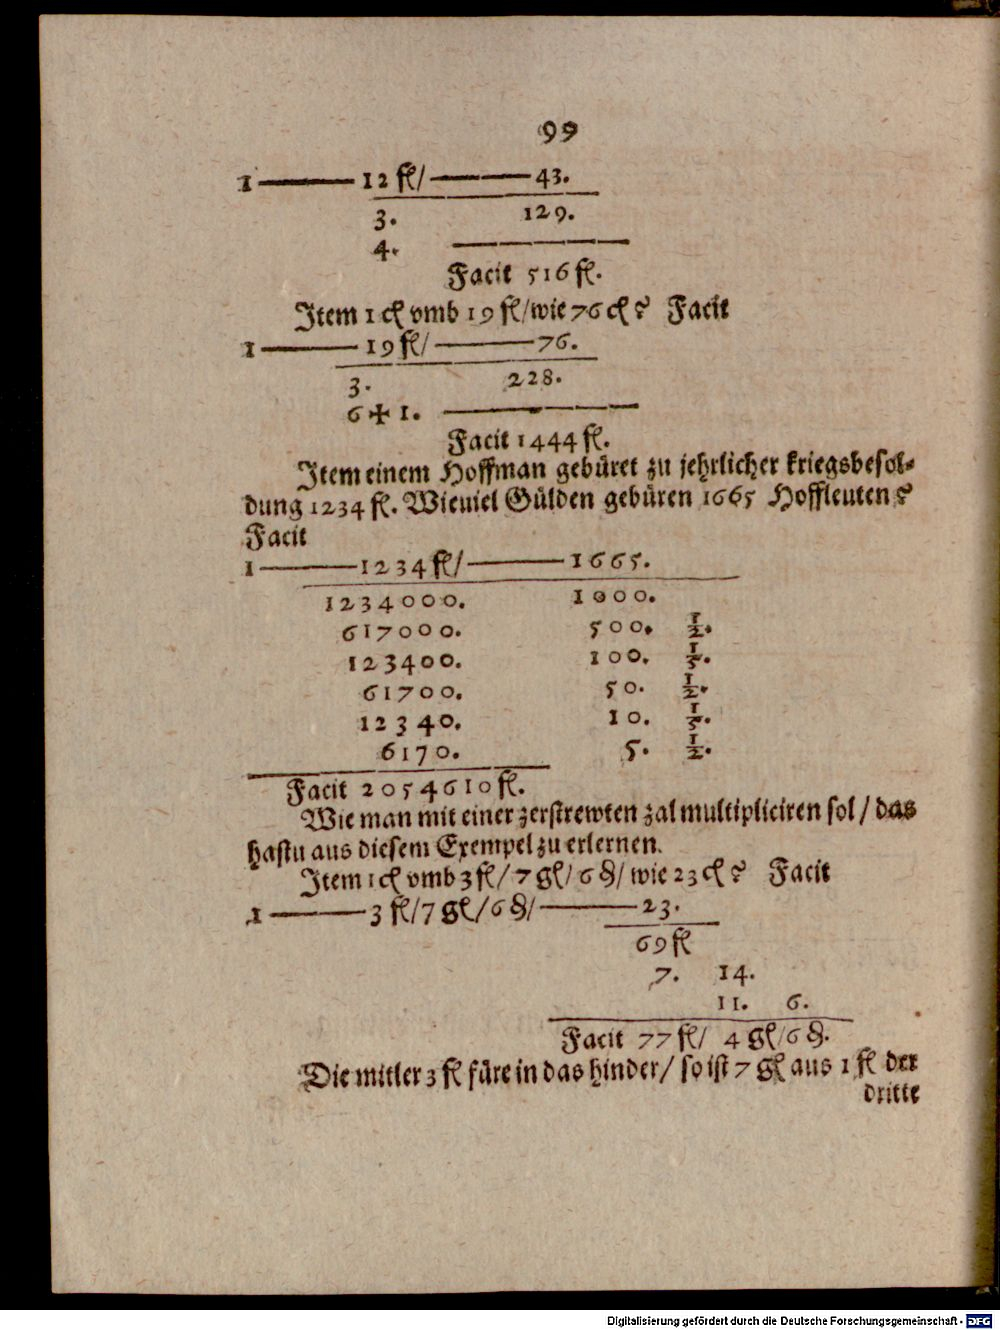 99
1 ——— 12 fl/ ——— 43.
3. 129.
4.
Facit 516 fl.
Item 1 cꝉ vmb 19 fl/ wie 76 cꝉ? Facit
1 ——— 19 fl/ ——— 76.
3. 228.
6 ✠ 1.
Facit 1444 fl.
Item einem Hoffman gebüret zu jehrlicher kriegsbesol-
dung 1234 fl. Wieuiel Gülden gebüren 1665 Hoffleuten?
Facit
1 ——— 1234 fl/ ——— 1665.
1234000. 1000.
617000. 500. 1/2.
123400. 100. 1/5.
61700. 50. 1/2.
12340. 10. 1/5.
6170. 5. 1/2.
Facit 2054610 fl.
Wie man mit einer zerstrewten zal multipliciren sol / das
hastu aus diesem Exempel zu erlernen.
Item 1 cꝉ vmb 3 fl/ 7 gl/ 6 ₰/ wie 23 cꝉ? Facit
1 ——— 3 fl/ 7 gl/ 6 ₰/ ——— 23.
69 fl
7. 14.
11. 6.
Facit 77 fl/ 4 gl/ 6 ₰.
Die mitler 3 fl füre in das hinder/ so ist 7 gl aus 1 fl der
dritte
Digitalisierung gefördert durch die Deutsche Forschungsgemeinschaft - DFG